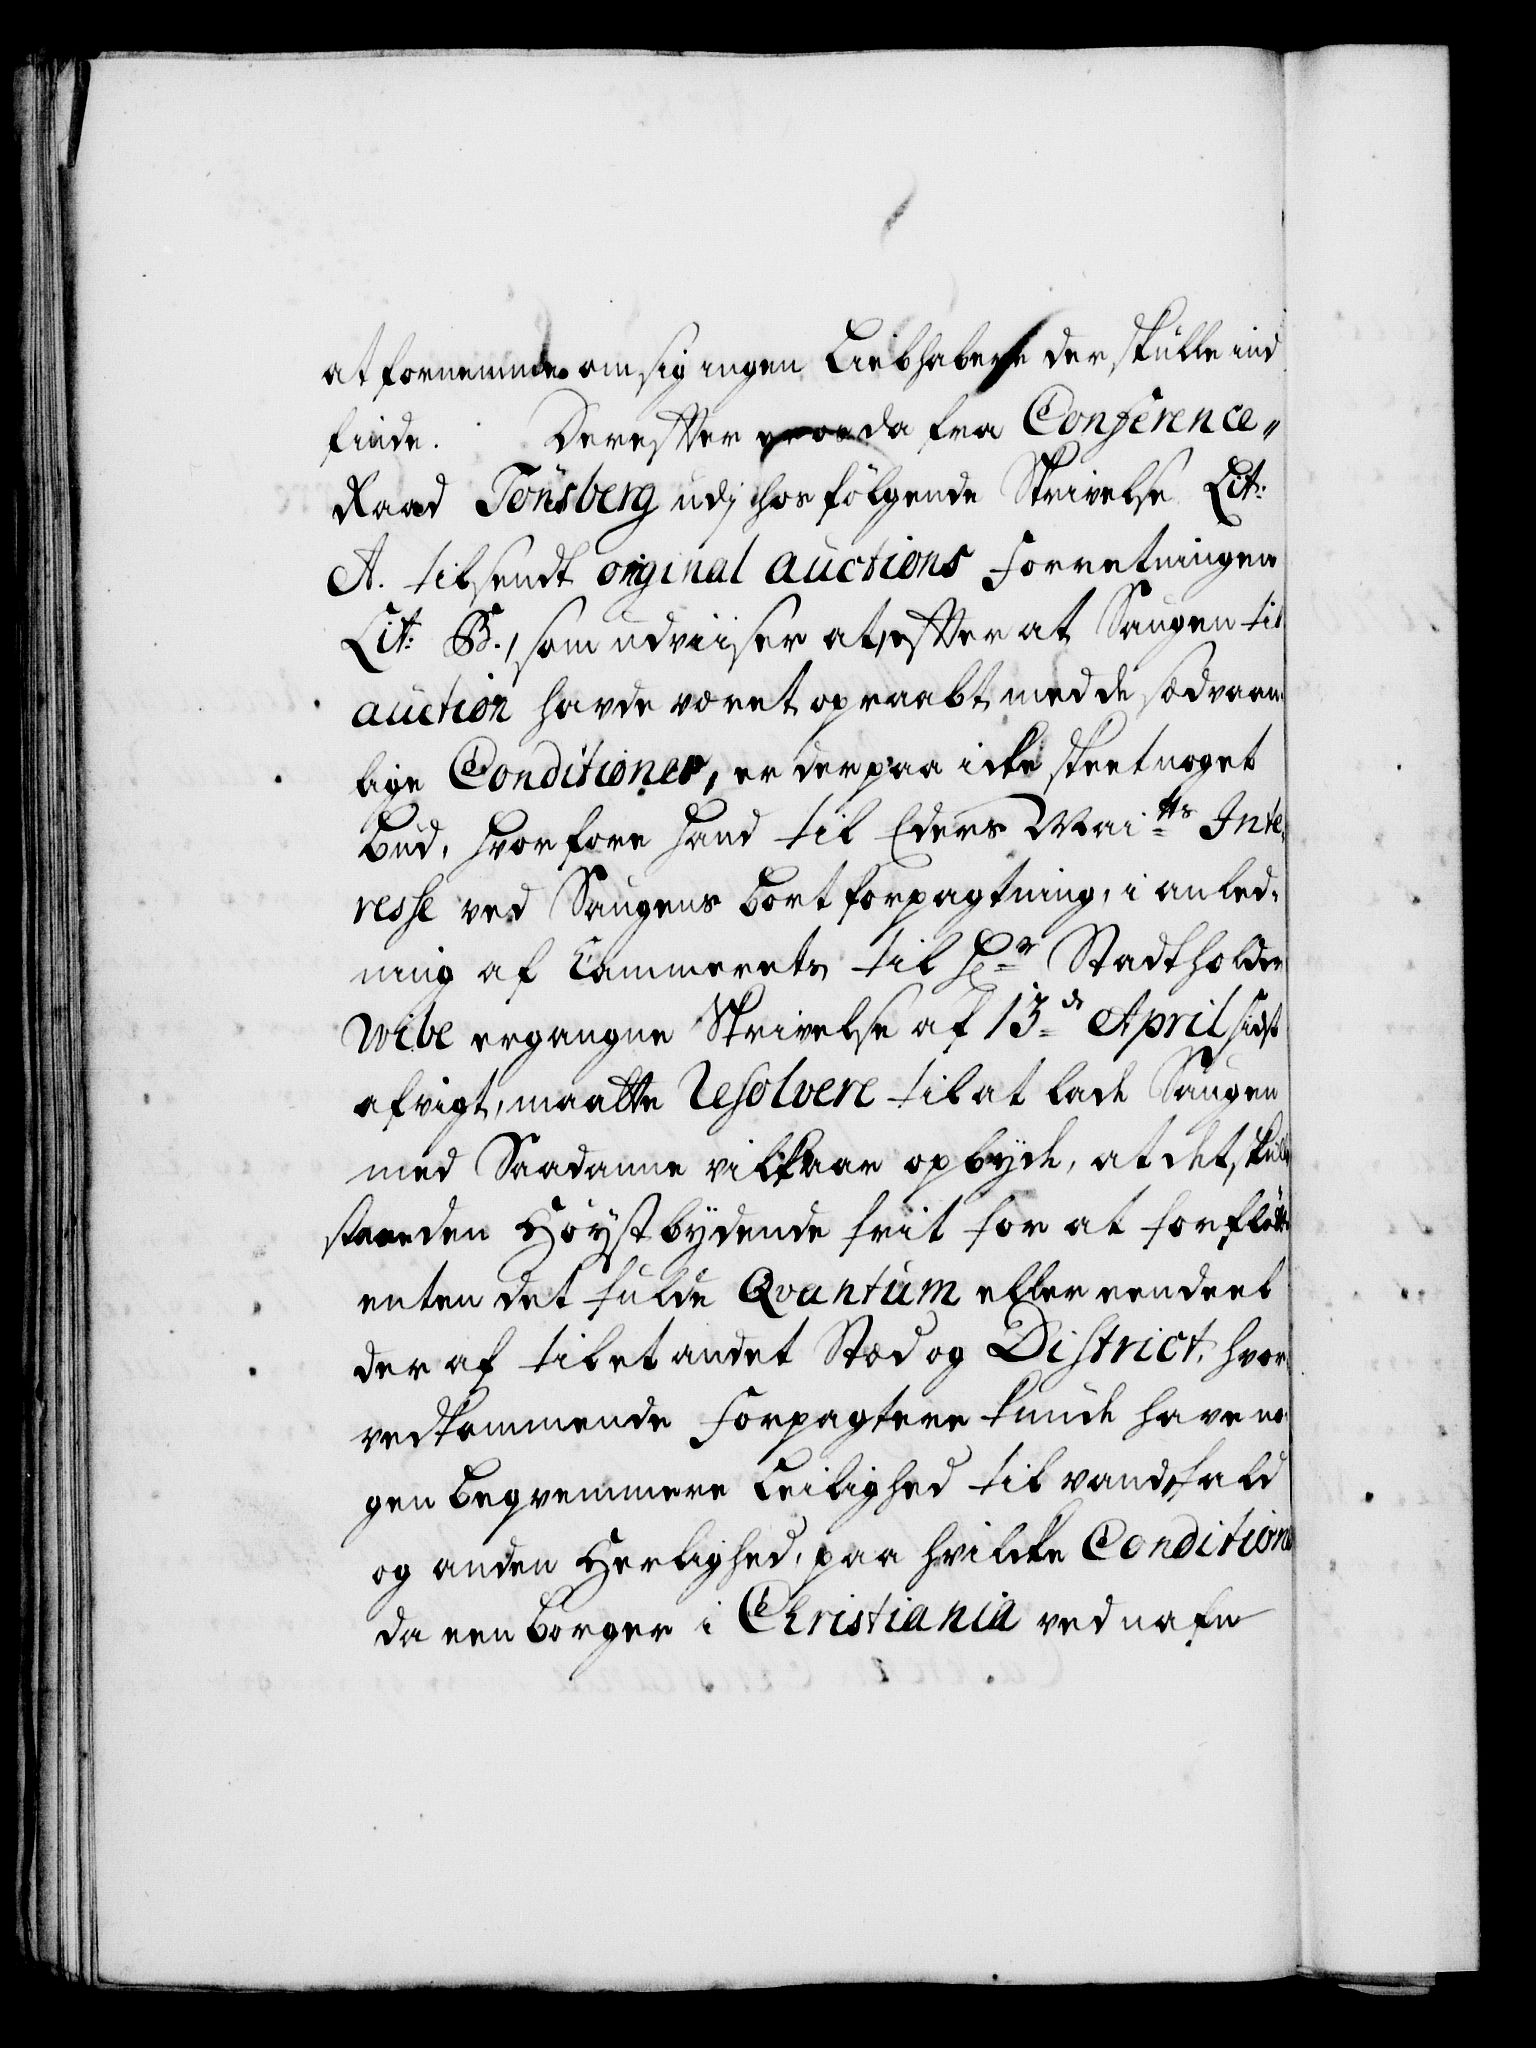 at fornemmde om sig ingen Liebhabere der skulle ind
finde. Derefter er os da fra Conference„
Raad Tönsberg udj hosfölgende Skrivelse Lit:
A. tilsendt original auctions Forretningen
Lit: B., som udviiser at, efter at Saugen til
auction hafde været opraabt med de sædvaan„
lige Conditioner, er derpaa icke skeet noget
Bud, hvorfore hand til Eders Mai:tts Inte„
resse ved Saugens bortforpagtning, i anled„
ning af Cammerets til Hr Stadtholder
Wibe ergangne Skrivelse af 13de April sidst
afvigt, maatte Resolvere til at lade Saugen
med Saadanne vilkaar opbyde, at det skulle
staae den Höystbydende frit for at forflötte
enten det fulde Qvantum eller een deel
der af til et andet Stæd og District, hvor
vedkommende Forpagtere kunde have no
gen beqvemmere Leilighed til vandfald
og anden Herlighed, paa hvilcke Condition
da een borger i Christiania ved nafn